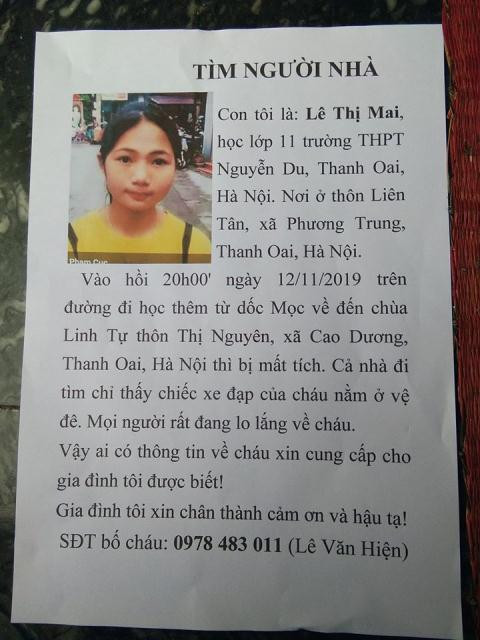 TÌM NGƯỜI NHÀ
Con tôi là: Lê Thị Mai,
học lớp 11 trường THPT
Nguyễn Du, Thanh Oai,
Hà Nội. Nơi ở thôn Liên
Tân, xã Phương Trung,
Thanh Oai, Hà Nội.
Pham Cuc
Vào hồi 20h00' ngày 12/11/2019 trên
đường đi học thêm từ dốc Mọc về đến chùa
Linh Tự thôn Thị Nguyên, xã Cao Dương,
Thanh Oai, Hà Nội thì bị mất tích. Cả nhà đi
tìm chỉ thấy chiếc xe đạp của cháu nằm ở vệ
đê. Mọi người rất đang lo lắng về cháu.
Vậy ai có thông tin về cháu xin cung cấp cho
gia đình tôi được biết!
Gia đình tôi xin chân thành cảm ơn và hậu tạ!
SĐT bố cháu: 0978 483 011 (Lê Văn Hiện)